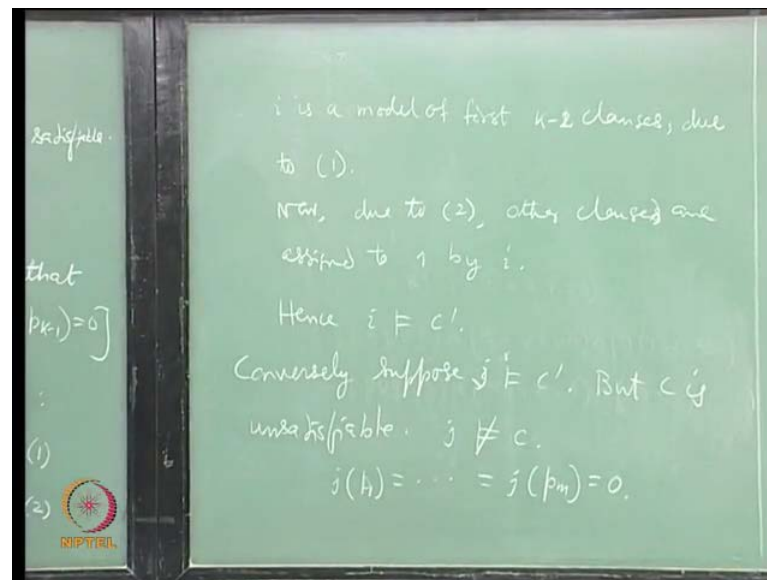 satisfiable.
that
p_{k-1})=0]
:
(1)
(2)
i is a model of first k-2 clauses, due
to (1).
Now, due to (2), other clauses are
assigned to 1 by i.
Hence i ⊨ C'.
Conversely suppose j ⊨ C'. But C is
unsatisfiable. j ⊭ C.
j(p_1) = ⋯ = j(p_m) = 0.
NPTEL